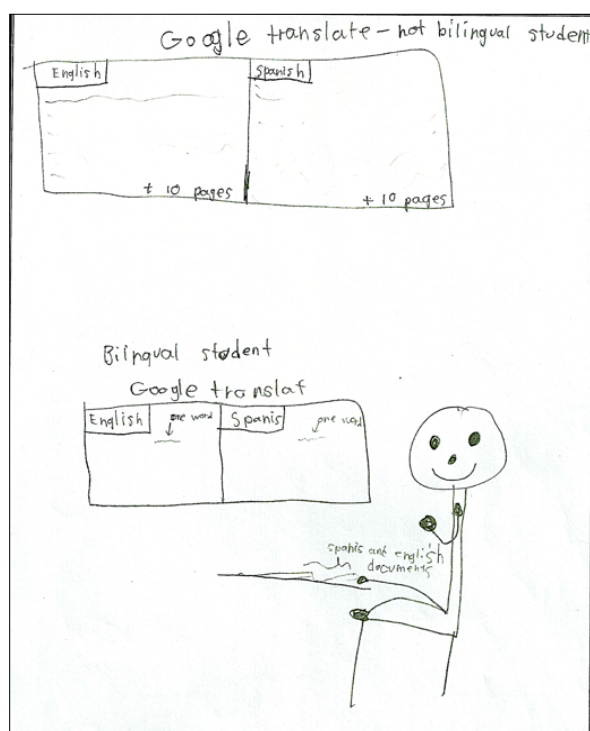 Google translate - not bilingual student
English
Spanish
+ 10 pages
+ 10 pages
Bilingual student
Google translat
English
one word
Spanis
one word
spanis and english
documents